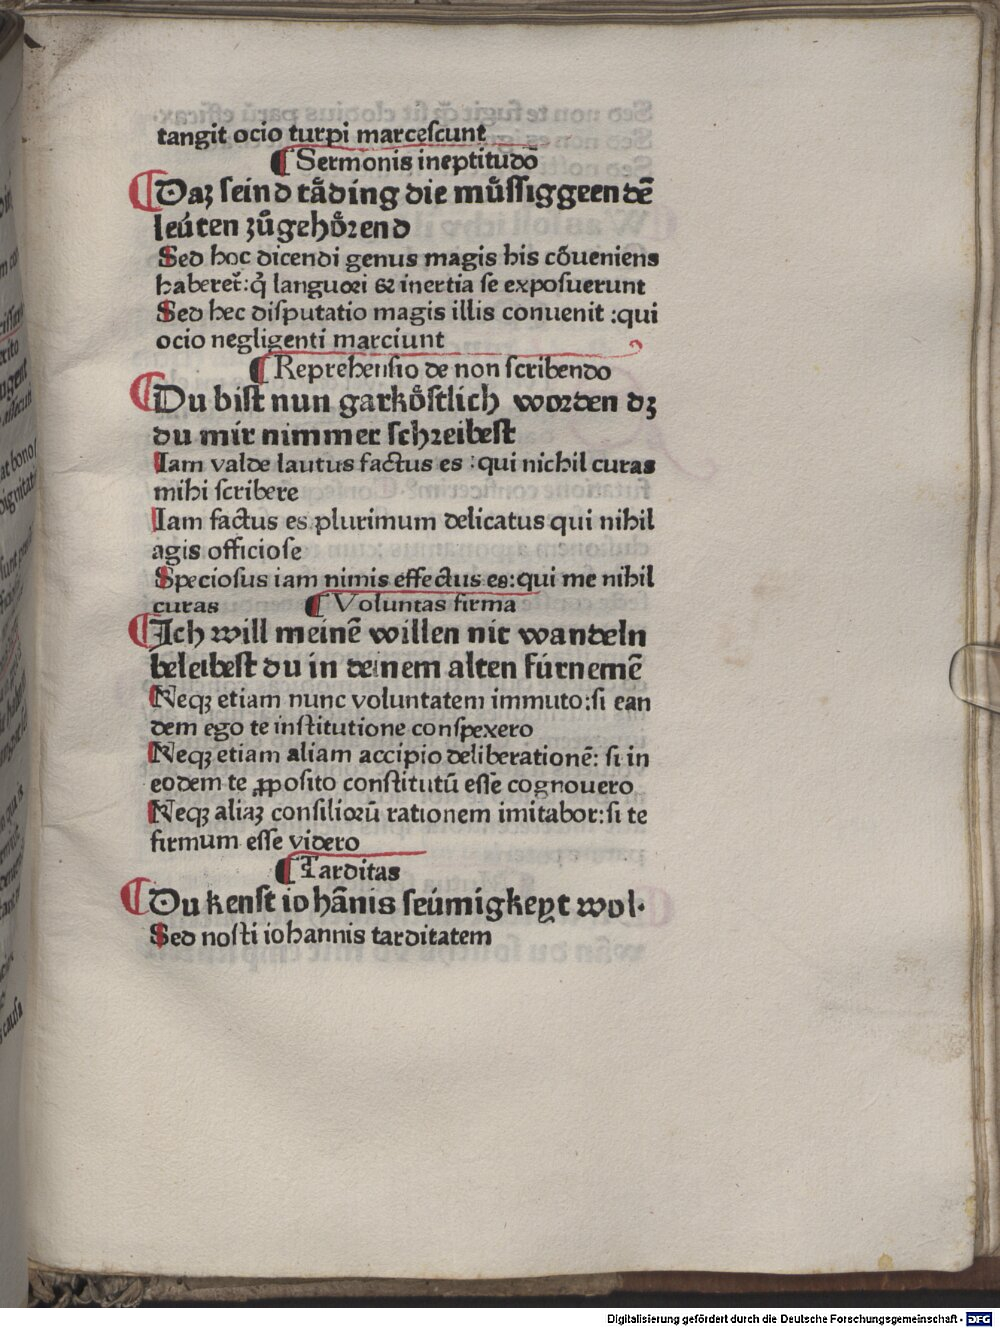 tangit ocio turpi marcescunt
¶ Sermonis ineptitudo
¶ Daz ſeind tåding die můſſiggeenden̄
leúten zůgehőrend
Sed hoc dicendi genus magis his cõueniens
haberet̃: q̃ languori & inertia ſe expoſuerunt
Sed hec diſputatio magis illis conuenit :qui
ocio negligenti marciunt
¶ Reprehenſio de non ſcribendo
¶ Du biſt nun garkőſtlich worden dz
du mir nimmer ſchreibeſt
Iam valde lautus factus es : qui nichil curas
mihi ſcribere
Iam factus es plurimum delicatus qui nihil
agis officioſe
Specioſus iam nimis effectus es: qui me nihil
curas ¶ Voluntas firma
¶ Ich will meinē willen nit wandeln
beleibeſt du in deinem alten fúrnemē
Neqꝫ etiam nunc voluntatem immuto:ſi ean
dem ego te inſtitutione conſpexero
Neqꝫ etiam aliam accipio deliberationē: ſi in
eodem te ꝓpoſito conſtitutū eſſe cognouero
Neqꝫ aliaꝫ conſiliorū rationem imitabor:ſi te
firmum eſſe videro
¶ Tarditas
¶ Du kenſt iohānis ſeúmigkeyt wol.
Sed noſti iohannis tarditatem
Digitalisierung gefördert durch die Deutsche Forschungsgemeinschaft - DFG